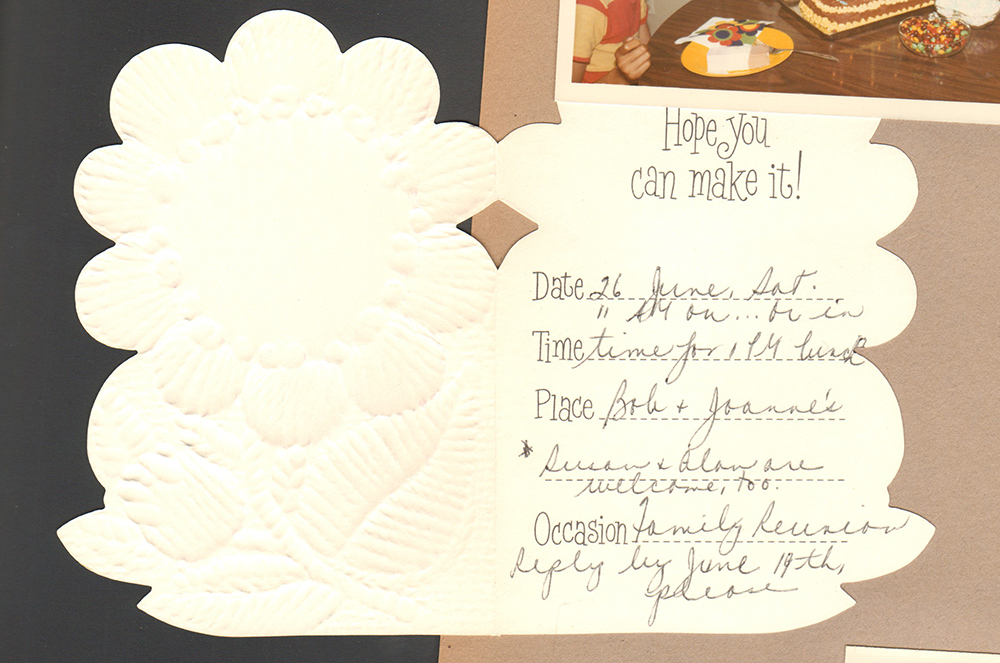 Hope you
can make it!
Date 26 June, Sat.
11 AM on... or in
Time time for 1 PM lunch
Place Bob + Joanne's
* Susan + Alan are
welcome, too.
Occasion Family Reunion
Reply by June 19th,
please